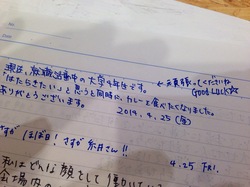 現在、就職活動中の大学4年生です。
「はたらきたい」と思うと同時に、カレーを食べたくなりました。
ありがとうございます。
2014. 4. 25 (金)
← お頑張ってくださいね
GOOD LUCK☆
さすが ほぼ日! さすが 糸井さん!!
4.25 FRI.
私はどんな顔をして働いて
会場内の